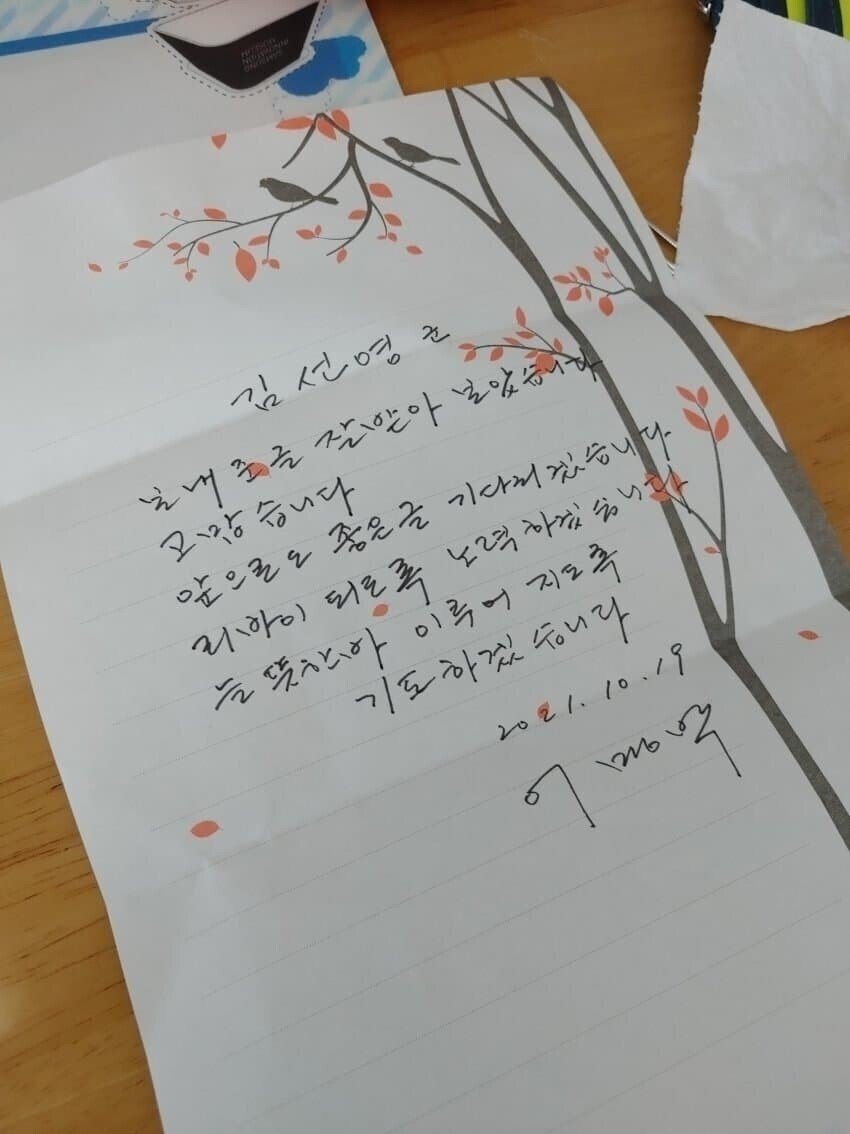 SAMSUNG
INNOVATION
MUSEUM
김선영 군
보내 준글 잘 받아 보았습니다
고맙습니다
앞으로도 좋은글 기다리겠습니다
되도록 노력하겠습니다
늘 뜻한바 이루어 지도록
기도하겠습니다
2021. 10. 19